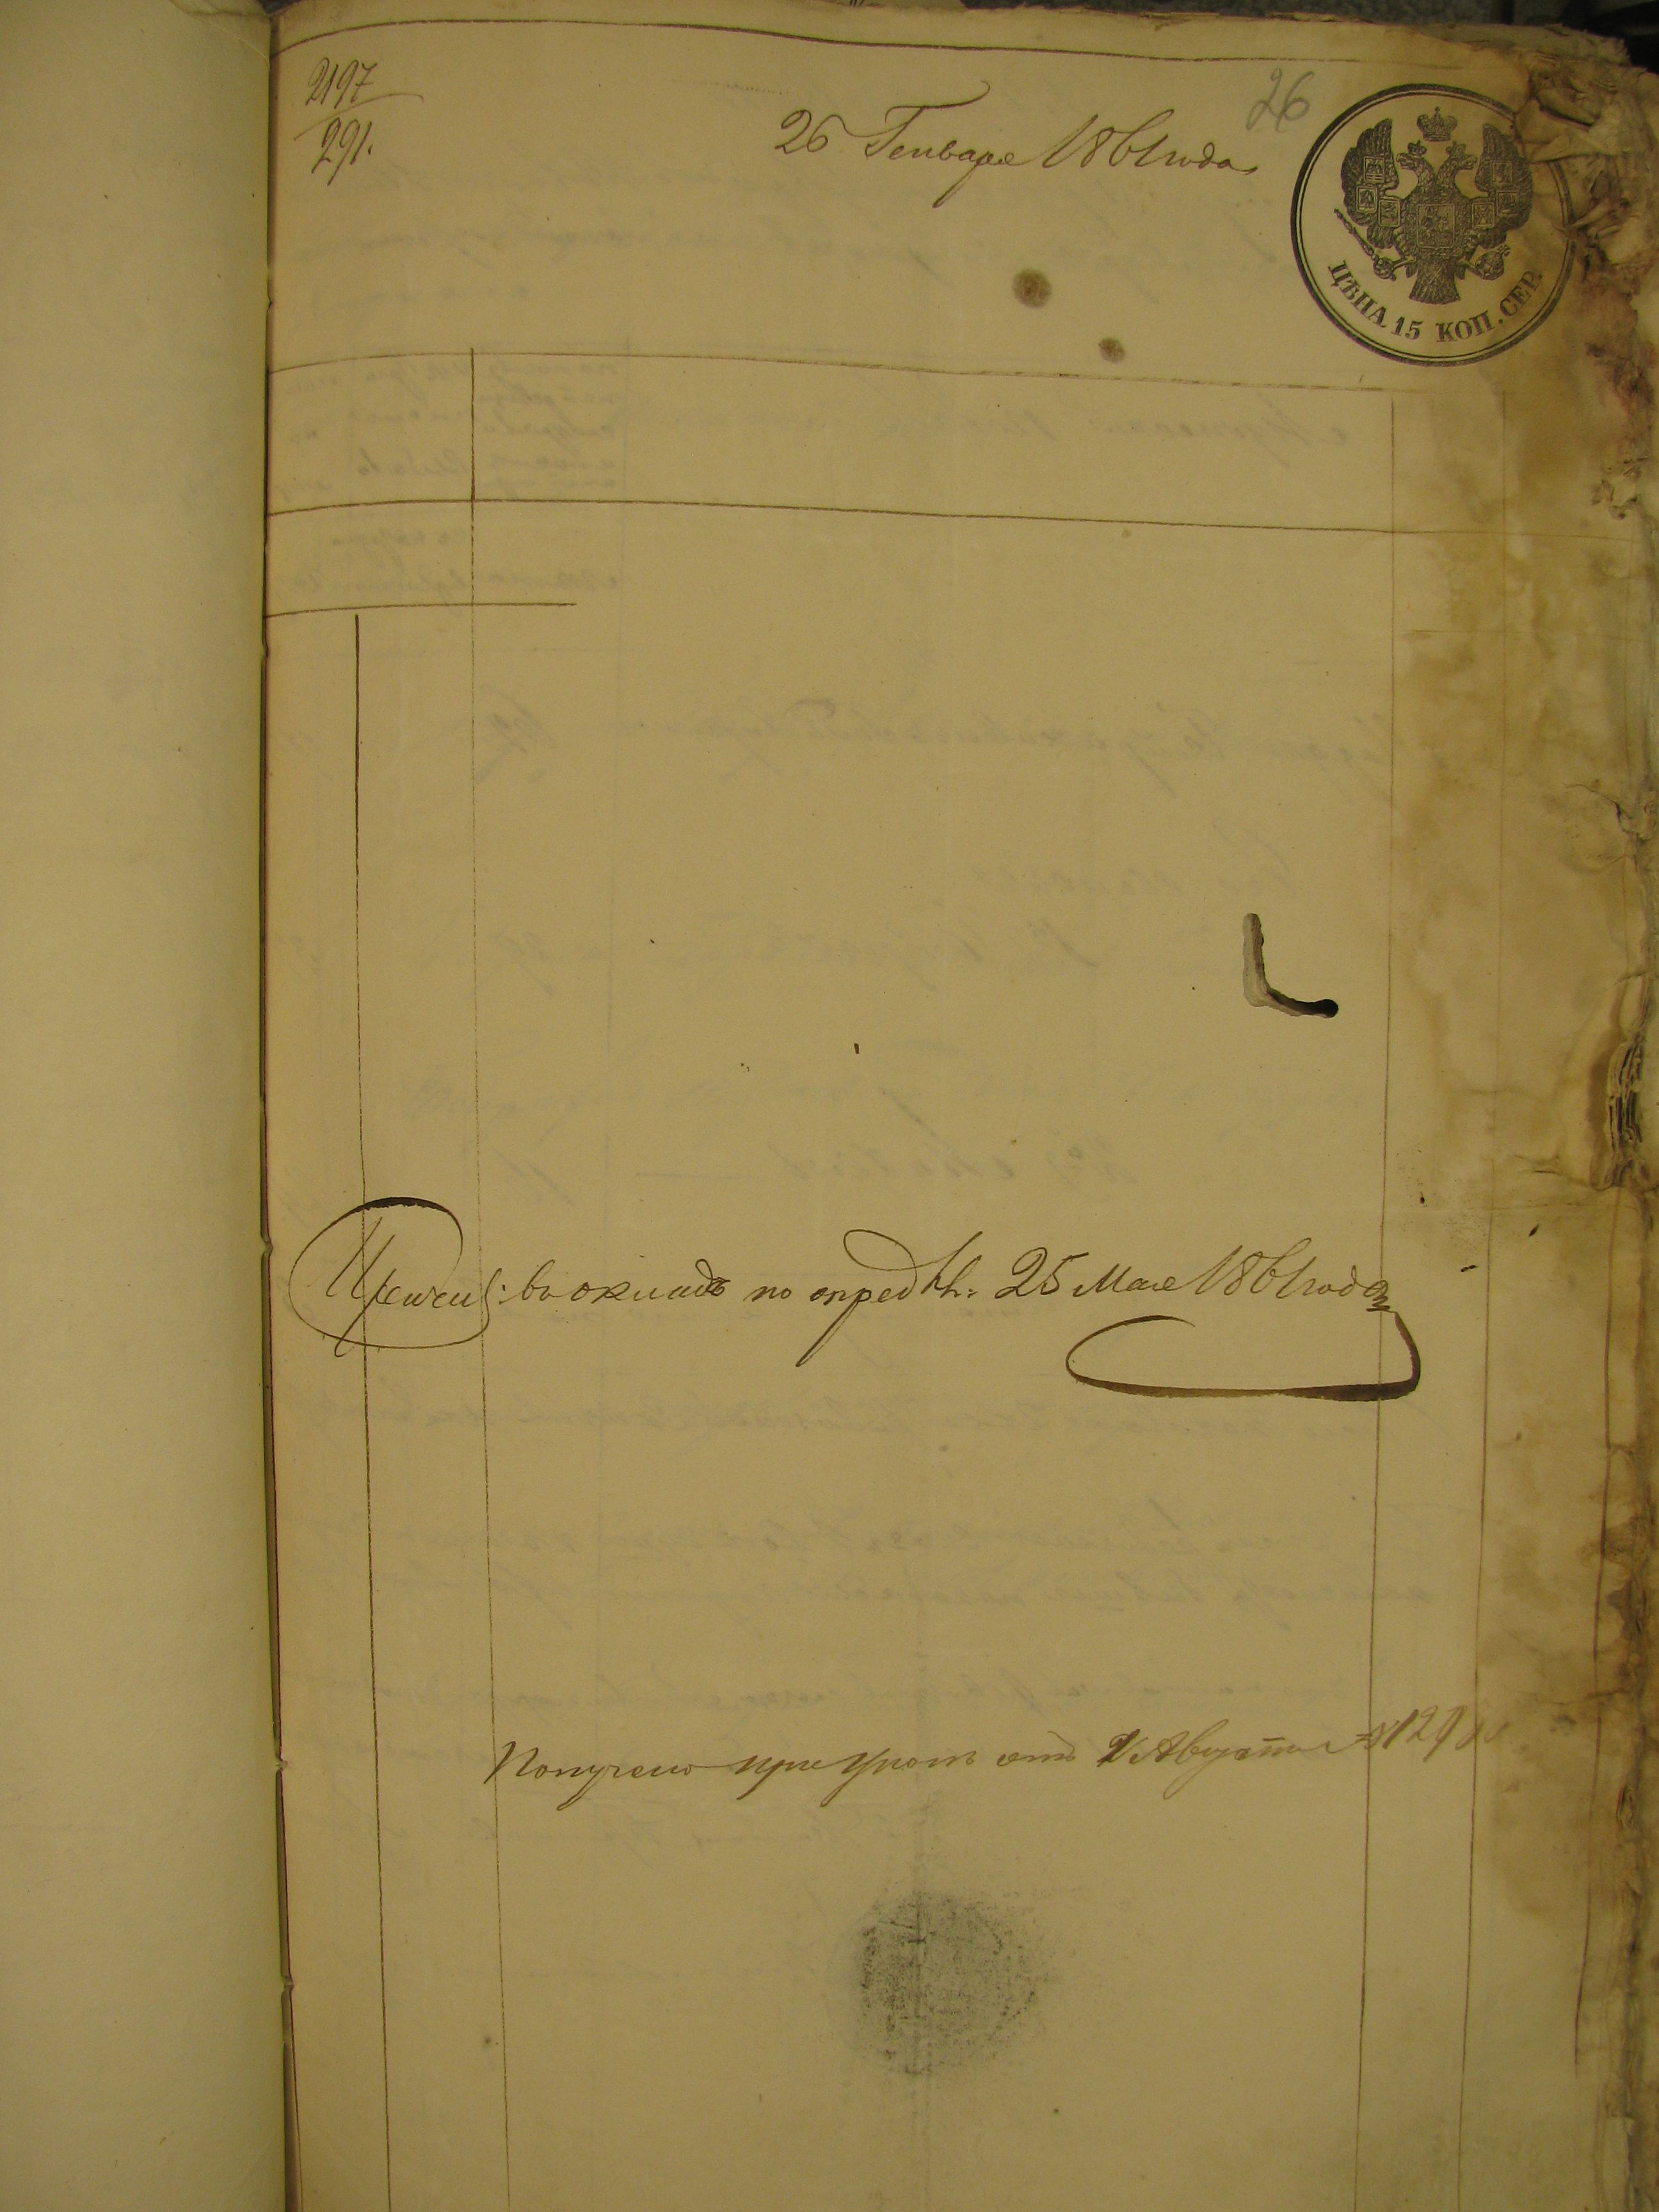 2197
291.
26 Генваря 1861 года
26
ЦѢНА 15 КОП. СЕР.
Причис: въ окладъ по опредѣл: 25 Мая 1861 года
Получено при Указѣ отъ Августа №